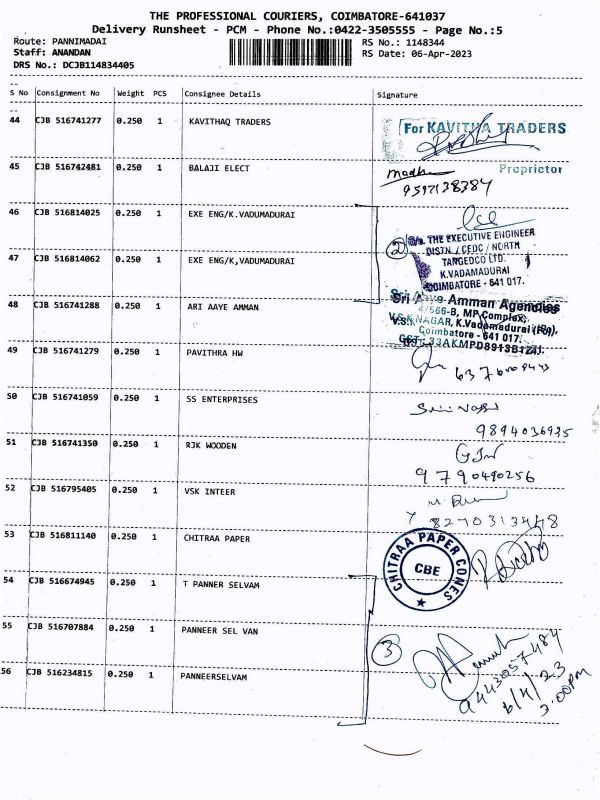 THE PROFESSIONAL COURIERS, COIMBATORE-641037
Delivery Runsheet - PCM - Phone No.:0422-3505555 - Page No.:5
Route: PANNIMADAI
RS No.: 1148344
Staff: ANANDAN
RS Date: 06-Apr-2023
DRS No.: DCJB114834405
S No Consignment No Weight PCS Consignee Details Signature
44 CJB 516741277 0.250 1 KAVITHAQ TRADERS
For KAVITHA TRADERS
Proprietor
45 CJB 516742481 0.250 1 BALAJI ELECT
Madhu
9597138384
46 CJB 516814025 0.250 1 EXE ENG/K.VADUMADURAI
2
O/o. THE EXECUTIVE ENGINEER
DISTN. / CEDC / NORTH
TANGEDCO LTD.
K.VADAMADURAI
COIMBATORE - 641 017.
47 CJB 516814062 0.250 1 EXE ENG/K,VADUMADURAI
48 CJB 516741288 0.250 1 ARI AAYE AMMAN
Sri Aaye Amman Agencies
4/566-B, MP Complex,
V.S.K NAGAR, K.Vadamadurai (Po),
Coimbatore - 641 017.
49 CJB 516741279 0.250 1 PAVITHRA HW
50 CJB 516741059 0.250 1 SS ENTERPRISES
51 CJB 516741350 0.250 1 RJK WOODEN
9790490256
52 CJB 516795405 0.250 1 VSK INTEER
53 CJB 516811140 0.250 1 CHITRAA PAPER
CHITRAA PAPER CONES
CBE
54 CJB 516674945 0.250 1 T PANNER SELVAM
55 CJB 516707884 0.250 1 PANNEER SEL VAN
56 CJB 516234815 0.250 1 PANNEERSELVAM
3
9443057484
6/4/23
3.00pm